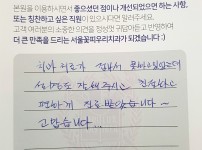 본원을 이용하시면서 좋으셨던 점이나 개선되었으면 하는 사항,
또는 칭찬하고 싶은 직원이 있으시다면 말려주세요.
고객 여러분의 소중한 의견을 정성껏 귀담아듣고 반영하여
더 큰 만족을 드리는 서울꽃피우리치과가 되겠습니다 :)
치아 치료가 겁나서 못하고있었는데
설명도 잘해주시고 친절하고
편하게 진료 받았습니다~
고맙습니다...